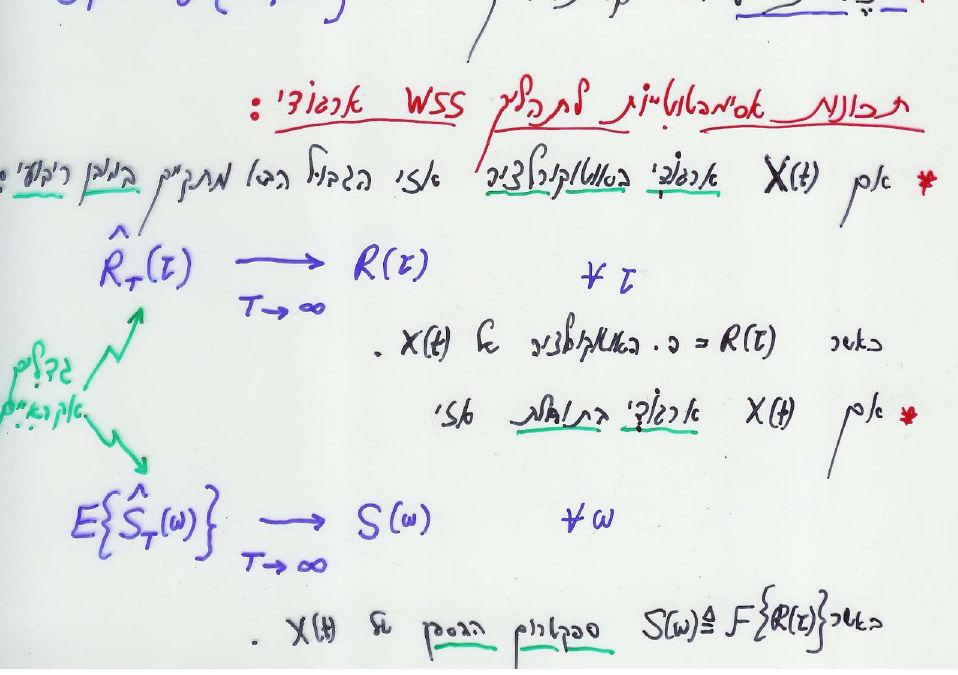 תכונות אסימפטוטיות לתהליך WSS ארגודי :
* אם X(t) ארגודי באוטוקורלציה אזי הגבול הבא מתקיים במובן ריבועי :
R̂_T(τ) → R(τ) ∀ τ
T→∞
כאשר R(τ) = פ. האוטוקורלציה של X(t) .
גדלים
אקראיים
* אם X(t) ארגודי בתוחלת אזי
E{Ŝ_T(ω)} → S(ω) ∀ ω
T→∞
כאשר S(ω) ≜ F{R(τ)} ספקטרום ההספק של X(t) .